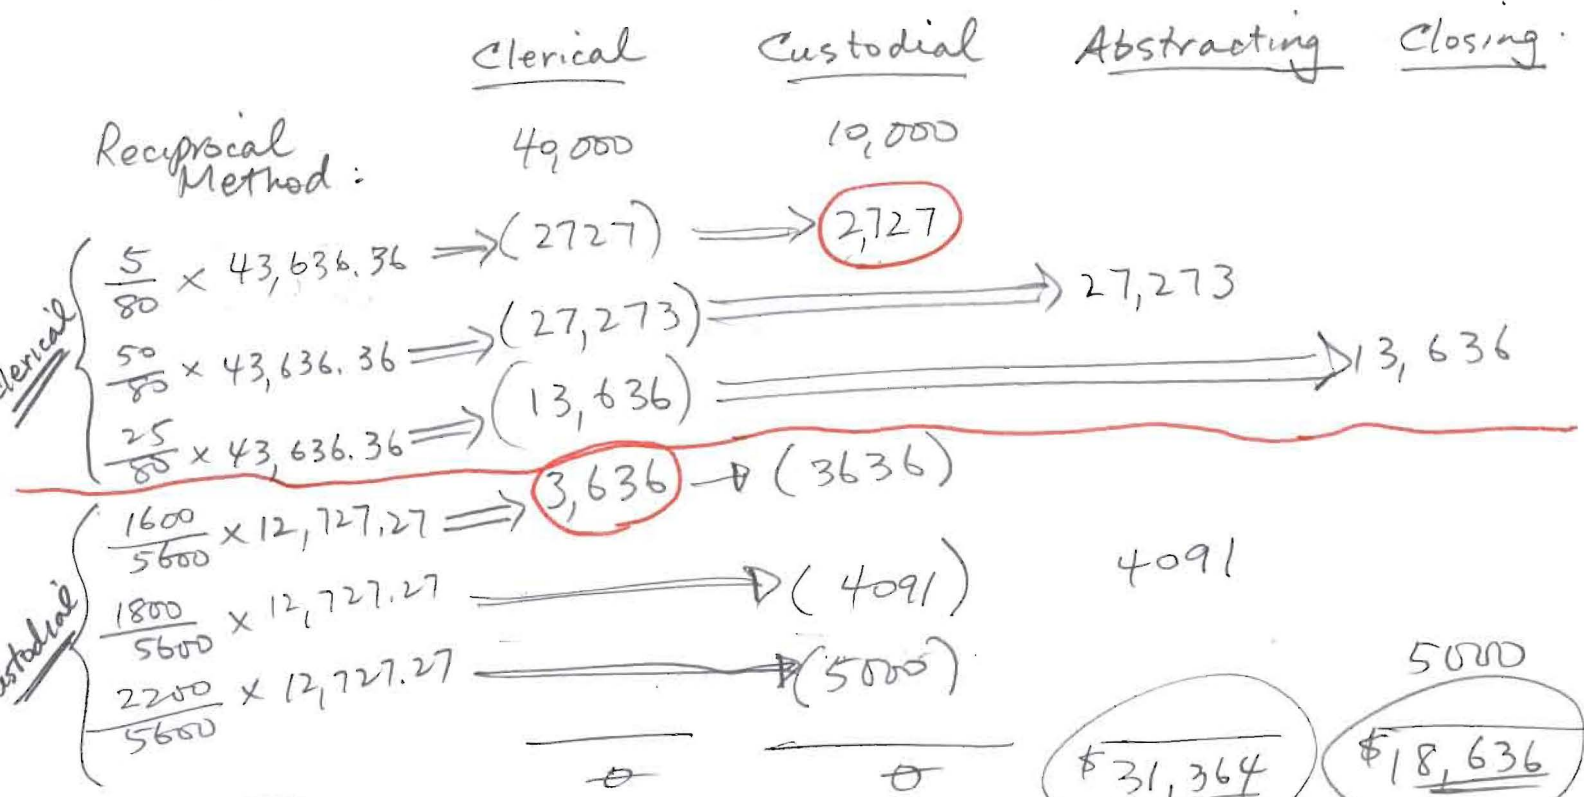 Clerical Custodial Abstracting Closing.
Reciprocal Method: 40,000 10,000
Clerical
5/80 × 43,636.36 ⇒ (2727) ⇒ 2,727
50/80 × 43,636.36 ⇒ (27,273) ⇒ 27,273
25/80 × 43,636.36 ⇒ (13,636) ⇒ 13,636
Custodial
1600/5600 × 12,727.27 ⇒ 3,636 → (3636)
1800/5600 × 12,727.27 ⇒ (4091) 4091
2200/5600 × 12,727.27 ⇒ (5000) 5000
0 0 $31,364 $18,636